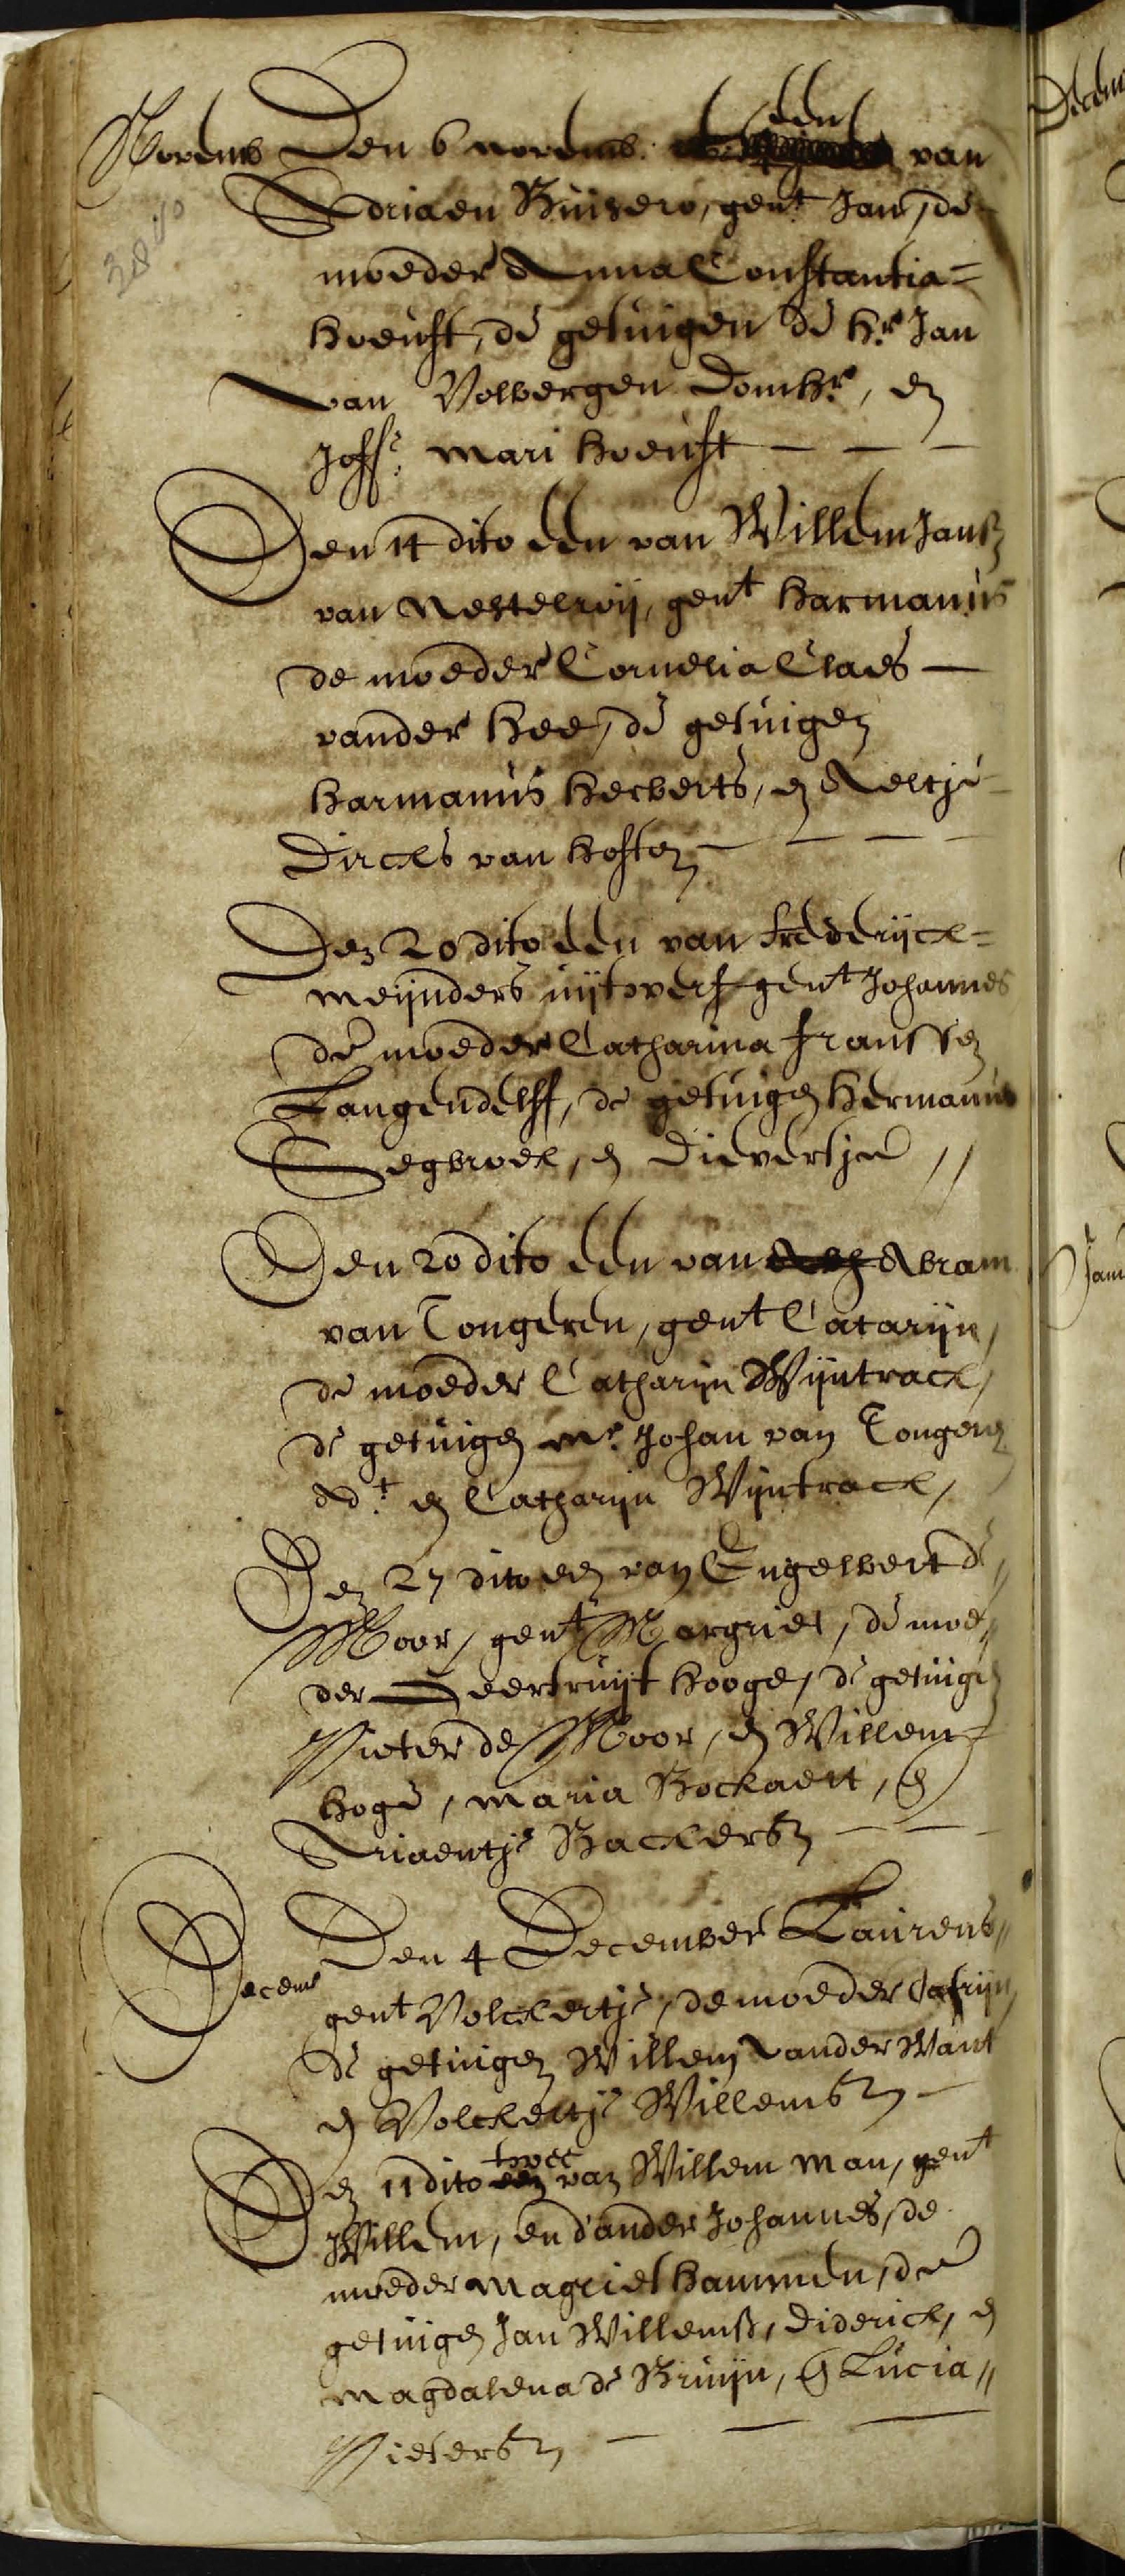 Novemb Den 6 novemb. een van
Adriaen Buisero, gent Jan, de
moeder Anna Constantia =
hoeuft, de getuigen de hr Jan
van Wolbergen Domhr, en
Joffr. mari hoeuft
Den 14 dito een van Willem Jansz
van Nestelroij, gent harmanus
de moeder Cornelia Claes
vander hee, de getuigen
harmanus herberts, en Aeltje
Dircks van hosten
Den 20 dito een van frederijck =
meijnders uijtwerf gent Johannes
de moeder Catharina franssen
Langendelff, de getuigen hermanus
Segbroek, en Dievertje //
Den 20 dito een van Abram
van Tongeren, gent Catarijn,
de moeder Catharijn Wijntrack,
de getuigen mr. Johan van Tongeren
adt. en Catharijn Wijntrack,
Den 27 dito een van Engelbert de //
Moor, gent Margriet, de moe //
der Geertruijt hooge, de getuigen
Pieter de Moor, en Willem
hoge, maria Bockaert, en
Ariaentje Backersz
Decemb
Den 4 December Laurens //
gent Volckertje, de moeder Catrijn
de getuigen Willem vander Want
en Volckertje Willemsz
twee
Den 11 dito een van Willem Man, gent
Willem, en d'ander Johannes, de
moeder Magriet hammen, de
getuigen Jan Willemsz, Diderick, en
Magdalena de Bruijn, en Lucia //
Pietersz
Decem
Janu